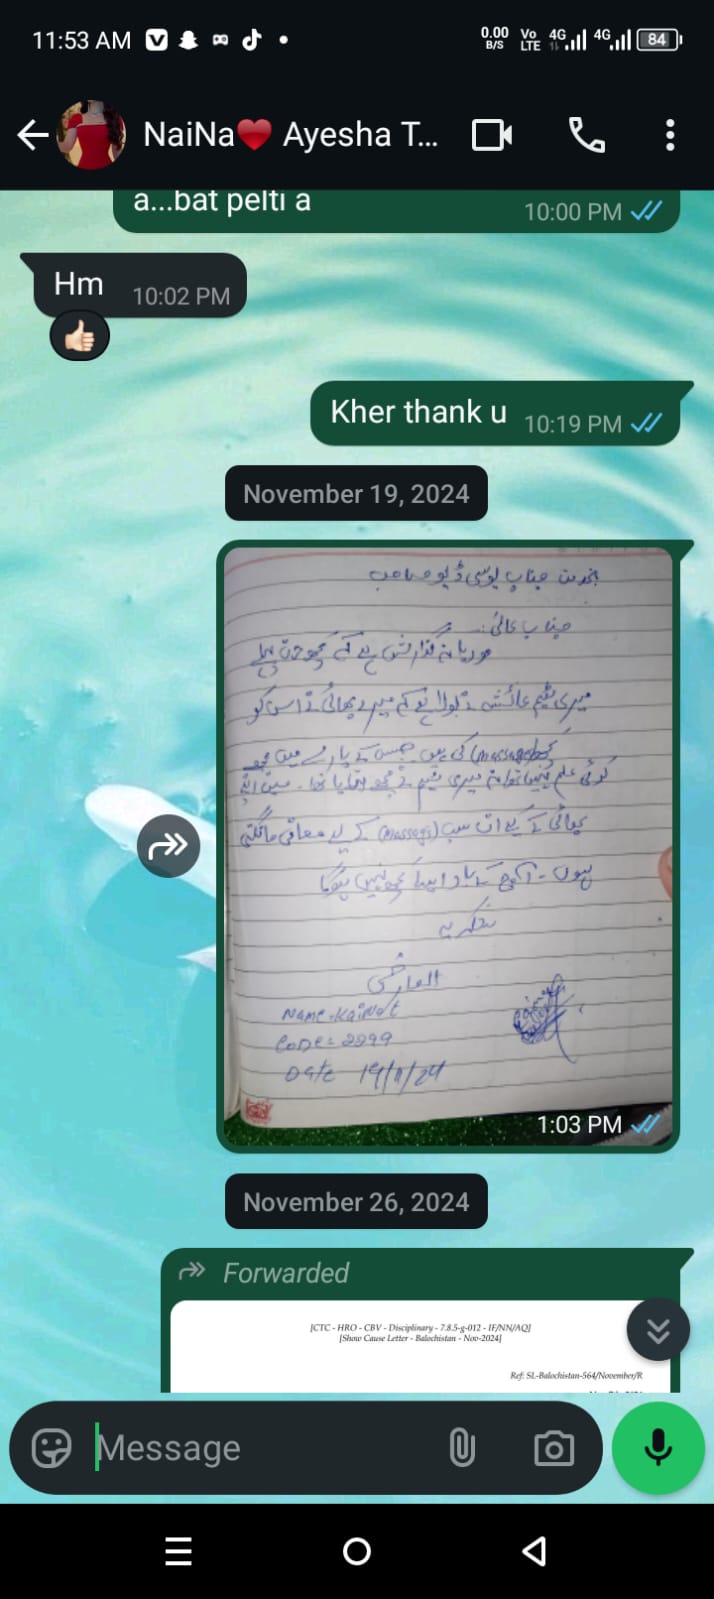 11:53 AM
0.00 B/S
Vo LTE 4G 4G 84
NaiNa❤️ Ayesha T...
a...bat pelti a
10:00 PM
Hm
10:02 PM
Kher thank u
10:19 PM
November 19, 2024
بخدمت جناب یوسی ڈیو صاحب
جناب عالی:
گزارش ہے کے کچھ دن پہلے
میری ٹیم عائشہ نے بولا ہے کے میرے بھائی نے اس کو
کچھ (massage) کی ہیں جس کے بارے میں مجھے
کوئی علم نہیں تھا نہ میری ٹیم نے مجھے بتایا تھا۔ میں اپنے
بھائی کے کیے ان سب (massage) کے لیے معافی مانگتی
ہوں۔ آج کے باد ایسا کچھ نہیں ہوگا
شکریہ
العارض
Name-KaiNat
CODE: 2999
Date 19/11/24
1:03 PM
November 26, 2024
Forwarded
[CTC - HRO - CBV - Disciplinary - 7.8.5-g-012 - IF/NN/AQ]
[Show Cause Letter - Balochistan - Nov-2024]
Ref: SL-Balochistan-564/November/R
Message